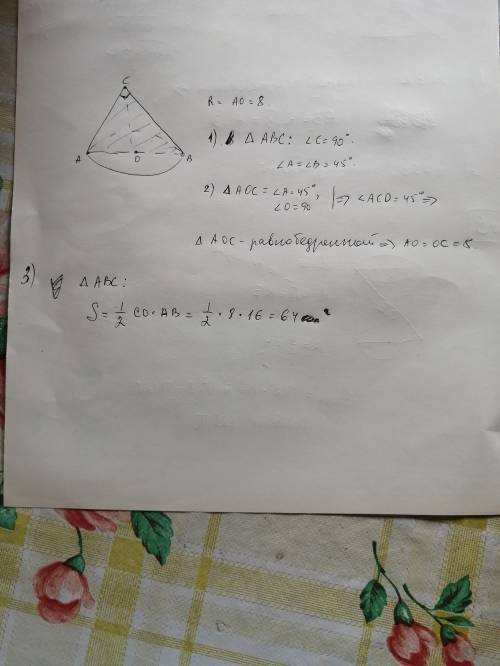 C
A
O
B
R = AO = 8
1) Δ ABC: ∠C = 90°.
∠A = ∠B = 45°.
2) Δ AOC = ∠A = 45°, |=> ∠ACO = 45° =>
∠O = 90
Δ AOC - равнобедренный => AO = OC = 8
3) Δ ABC:
S = 1/2 CO · AB = 1/2 · 8 · 16 = 64 см²